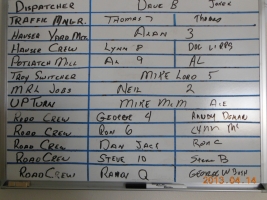 DISPATCHER DAVE B JONER
TRAFFIC MNGR. THOMAS 7 THOMAS
HAUSER YARD MGR. ALAN 3
HAUSER CREW LYNN 8 DOC
POTLATCH MILL AL 9 AL
TROY SWITCHER MIKE LORD 5
MRL JOBS NEIL 2
UPTURN MIKE MCM
ROAD CREW GEORGE 4 RANDY
ROAD CREW RON 6 LYNN MC
ROAD CREW DAN JACK
ROAD CREW STEVE 10 B
ROAD CREW RANDY Q GEORGE W
2013.04.14